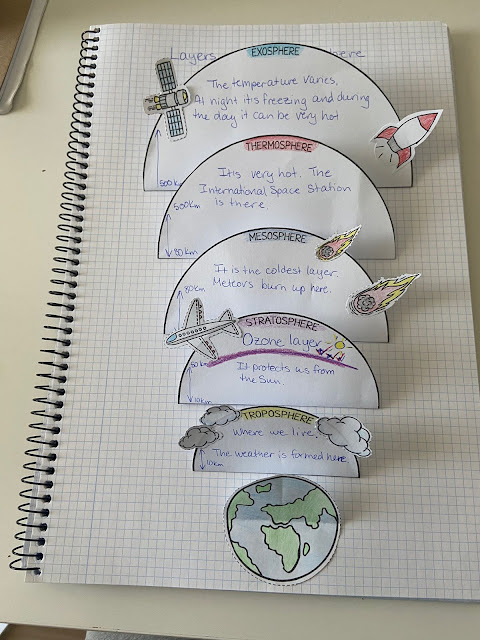 Layers
here
EXOSPHERE
The temperature varies.
At night it's freezing and during
the day it can be very hot
500 km
THERMOSPHERE
It is very hot. The
International Space Station
is there.
500 km
80 km
MESOSPHERE
It is the coldest layer.
Meteors burn up here.
80 km
STRATOSPHERE
Ozone layer
50 km
It protects us from
the Sun.
10 km
TROPOSPHERE
Where we live.
The weather is formed here
10 km